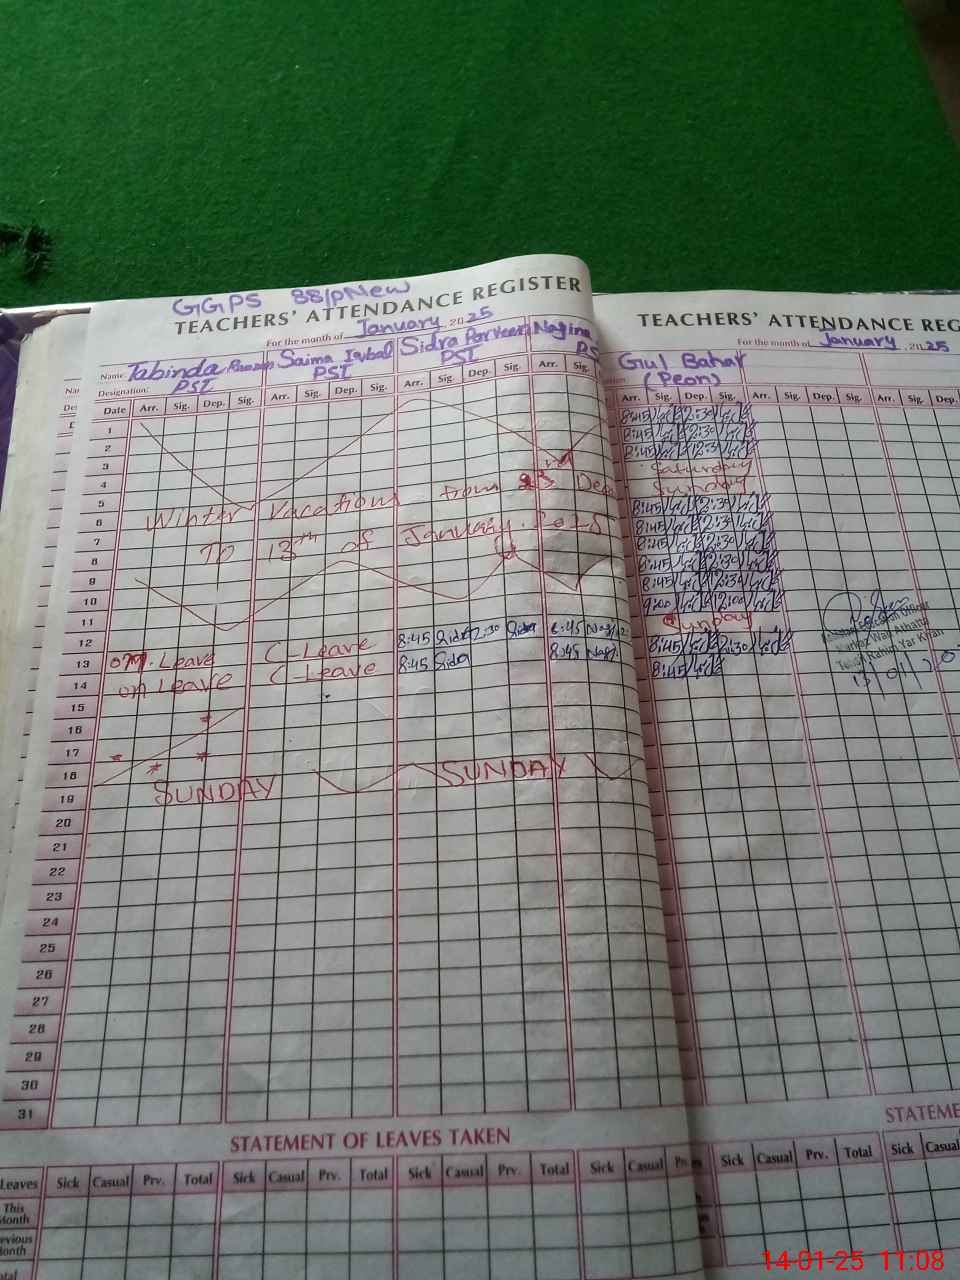 GGPS 88/P New
TEACHERS' ATTENDANCE REGISTER
For the month of January 2025
Name: Tabinda Saima Iqbal Sidra Parveen Nagina
Designation: PST PST PST PS
Date Arr. Sig. Dep. Sig. Arr. Sig. Dep. Sig. Arr. Sig. Dep. Sig. Arr. Sig.
1
2
3
4
5
6
7
8
9
10
11
Winter Vacations from 23rd Dec
To 13th of January. 2025
12
13 on. Leave C-Leave 8:45 Sidra 2:30 Sidra 8:45
14 on Leave C-Leave 8:45 Sidra 8:45
15
16
17
18
19 SUNDAY SUNDAY
20
21
22
23
24
25
26
27
28
29
30
31
STATEMENT OF LEAVES TAKEN
Leaves Sick Casual Prv. Total Sick Casual Prv. Total Sick Casual Prv. Total Sick Casual
This Month
TEACHERS' ATTENDANCE REG
For the month of January 2025
Gul Bahar
(Peon)
Arr. Sig. Dep. Sig. Arr. Sig. Dep. Sig. Arr. Sig. Dep.
8:45 2:30
8:45 2:30
8:45 12:30
Saturday
Sunday
8:45 2:30
8:45 2:30
8:45 2:30
8:45 2:30
8:45 12:30
9:00 12:00
Sunday
8:45 2:30
8:45
Tehsil Rahim Yar Khan
STATEME
Sick Casual Prv. Total Sick Casual
14-01-25 11:08